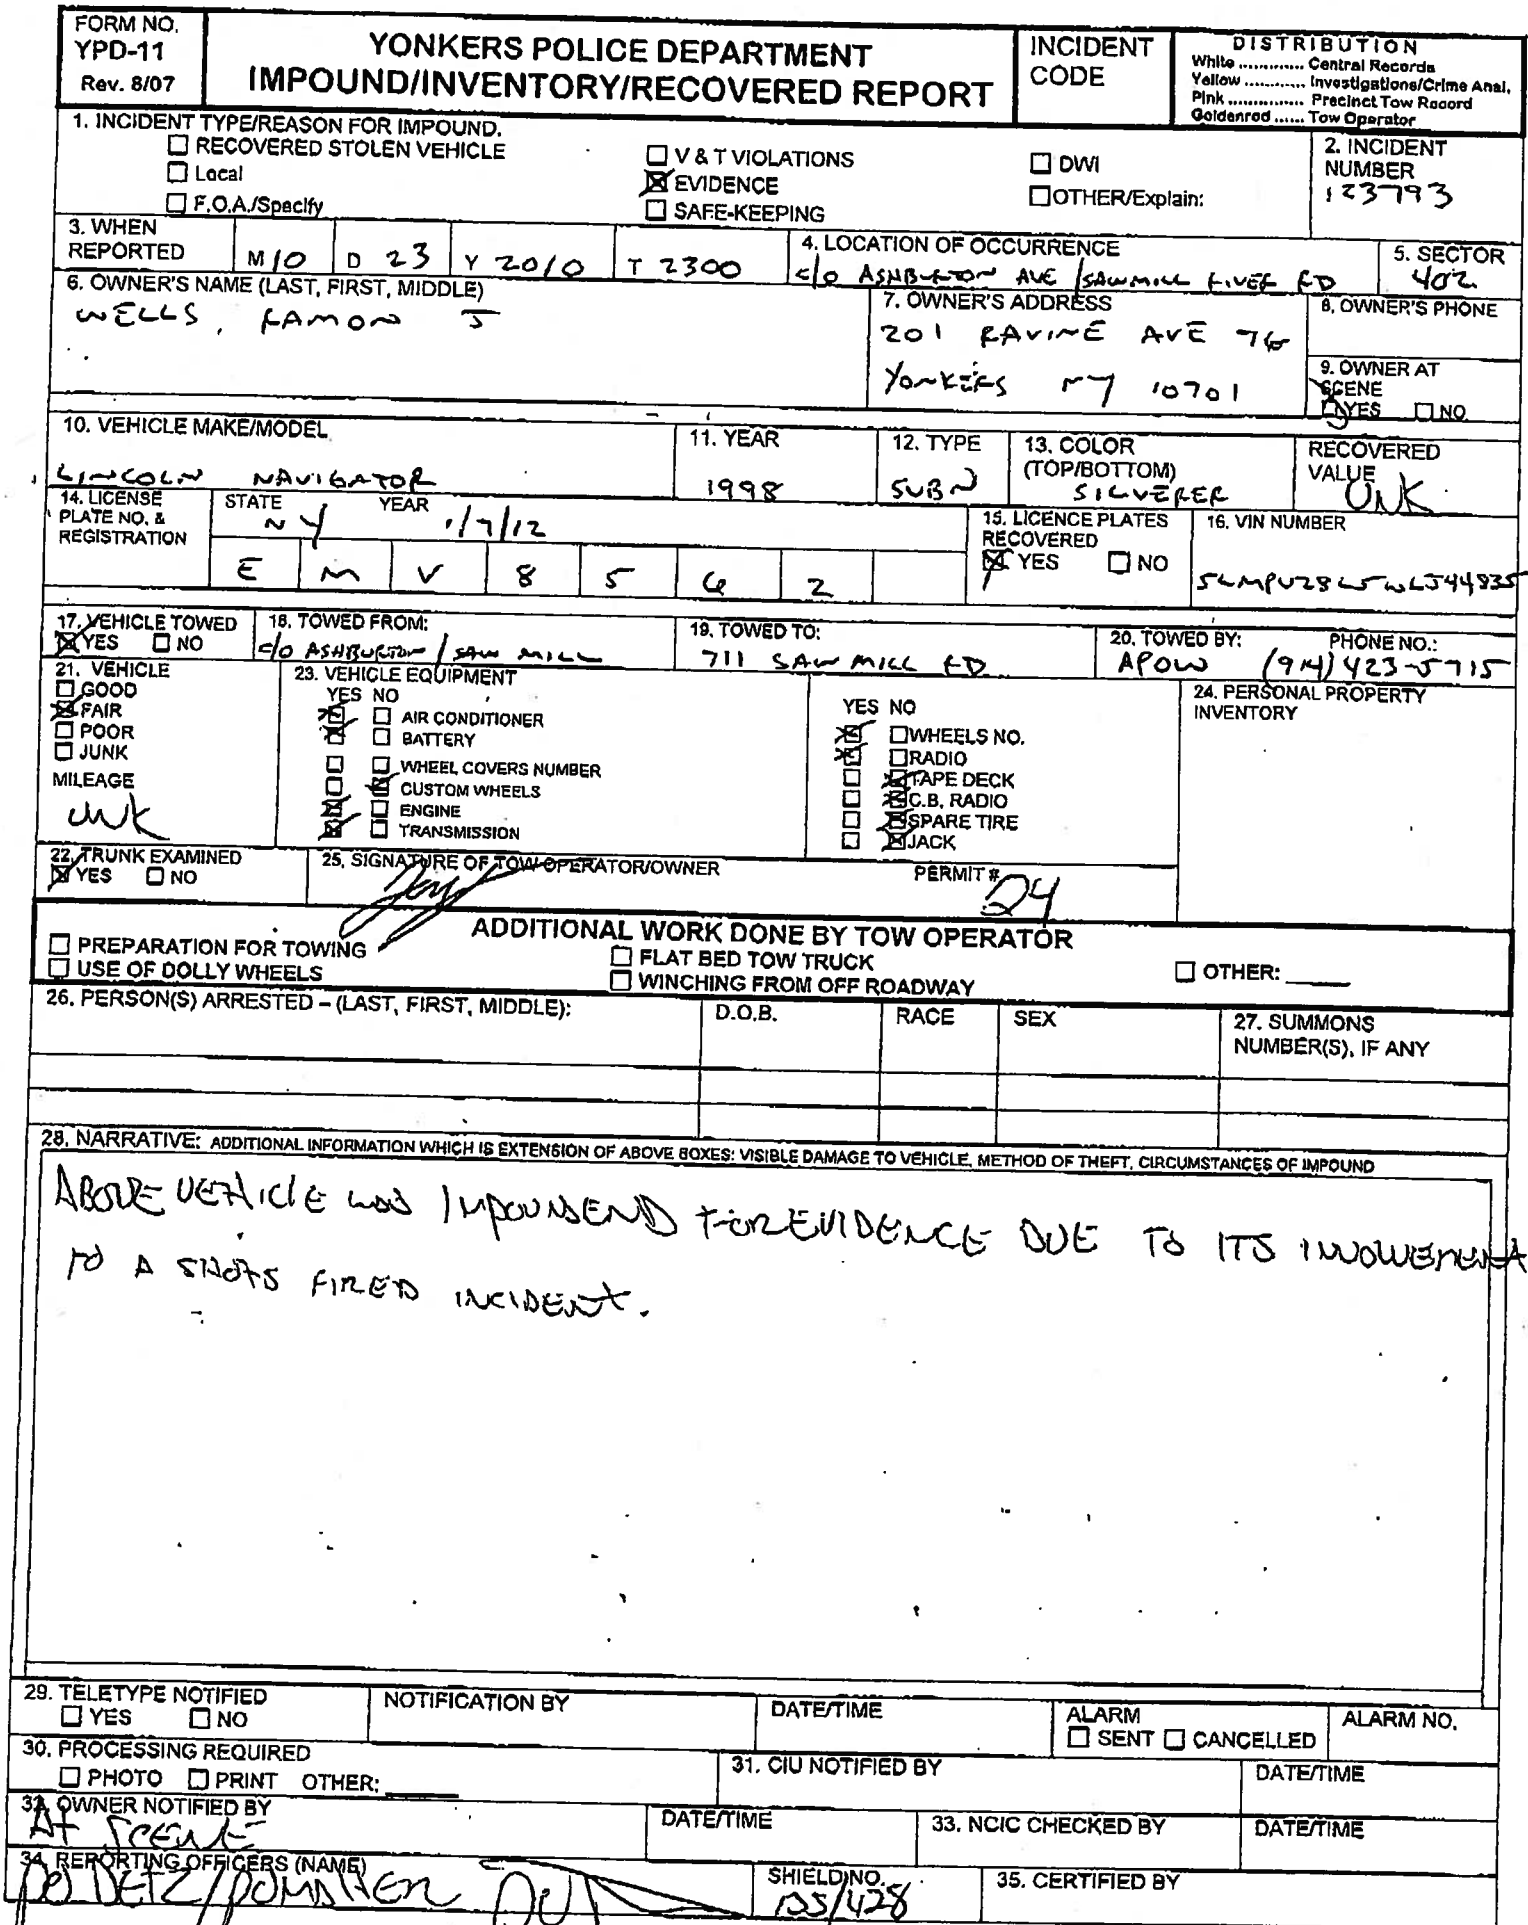 FORM NO.
YPD-11
Rev. 8/07
YONKERS POLICE DEPARTMENT
IMPOUND/INVENTORY/RECOVERED REPORT
INCIDENT
CODE
DISTRIBUTION
White ............ Central Records
Yellow ............ Investigations/Crime Anal.
Pink ............... Precinct Tow Record
Goldenrod ...... Tow Operator
1. INCIDENT TYPE/REASON FOR IMPOUND.
RECOVERED STOLEN VEHICLE
Local
F.O.A./Specify
V & T VIOLATIONS
EVIDENCE
SAFE-KEEPING
DWI
OTHER/Explain:
2. INCIDENT
NUMBER
123793
3. WHEN
REPORTED
M 10 D 23 Y 2010 T 2300
4. LOCATION OF OCCURRENCE
c/o ASHBURTON AVE / SAWMILL RIVER RD
5. SECTOR
402
6. OWNER'S NAME (LAST, FIRST, MIDDLE)
WELLS, RAMON J
7. OWNER'S ADDRESS
201 RAVINE AVE 7G
YONKERS NY 10701
8. OWNER'S PHONE
9. OWNER AT
SCENE
YES NO
10. VEHICLE MAKE/MODEL
LINCOLN NAVIGATOR
11. YEAR
1998
12. TYPE
SUBN
13. COLOR
(TOP/BOTTOM)
RECOVERED
VALUE
UNK
14. LICENSE
PLATE NO. &
REGISTRATION
STATE
NY
YEAR
1/7/12
E M V 8 5 6 2
15. LICENCE PLATES
RECOVERED
YES NO
16. VIN NUMBER
5LMPU28L5WLJ44835
17. VEHICLE TOWED
YES NO
18. TOWED FROM:
c/o ASHBURTON / SAW MILL
19. TOWED TO:
711 SAW MILL RD
20. TOWED BY: PHONE NO.:
APOW (914) 423-5715
21. VEHICLE
GOOD
FAIR
POOR
JUNK
MILEAGE
UNK
23. VEHICLE EQUIPMENT
YES NO
AIR CONDITIONER
BATTERY
WHEEL COVERS NUMBER
CUSTOM WHEELS
ENGINE
TRANSMISSION
YES NO
WHEELS NO.
RADIO
TAPE DECK
C.B. RADIO
SPARE TIRE
JACK
24. PERSONAL PROPERTY
INVENTORY
22. TRUNK EXAMINED
YES NO
25. SIGNATURE OF TOW OPERATOR/OWNER
PERMIT # 24
ADDITIONAL WORK DONE BY TOW OPERATOR
PREPARATION FOR TOWING
USE OF DOLLY WHEELS
FLAT BED TOW TRUCK
WINCHING FROM OFF ROADWAY
OTHER:
26. PERSON(S) ARRESTED – (LAST, FIRST, MIDDLE):
D.O.B.
RACE
SEX
27. SUMMONS
NUMBER(S), IF ANY
28. NARRATIVE: ADDITIONAL INFORMATION WHICH IS EXTENSION OF ABOVE BOXES: VISIBLE DAMAGE TO VEHICLE, METHOD OF THEFT, CIRCUMSTANCES OF IMPOUND
ABOVE VEHICLE WAS IMPOUNDEND FOR EVIDENCE DUE TO ITS INVOLVEMENT
TO A SHOTS FIRED INCIDENT.
29. TELETYPE NOTIFIED
YES NO
NOTIFICATION BY
DATE/TIME
ALARM
SENT CANCELLED
ALARM NO.
30. PROCESSING REQUIRED
PHOTO PRINT OTHER:
31. CIU NOTIFIED BY
DATE/TIME
32. OWNER NOTIFIED BY
At SCENE
DATE/TIME
33. NCIC CHECKED BY
DATE/TIME
34. REPORTING OFFICERS (NAME)
PO DETZ/
SHIELD NO.
/428
35. CERTIFIED BY